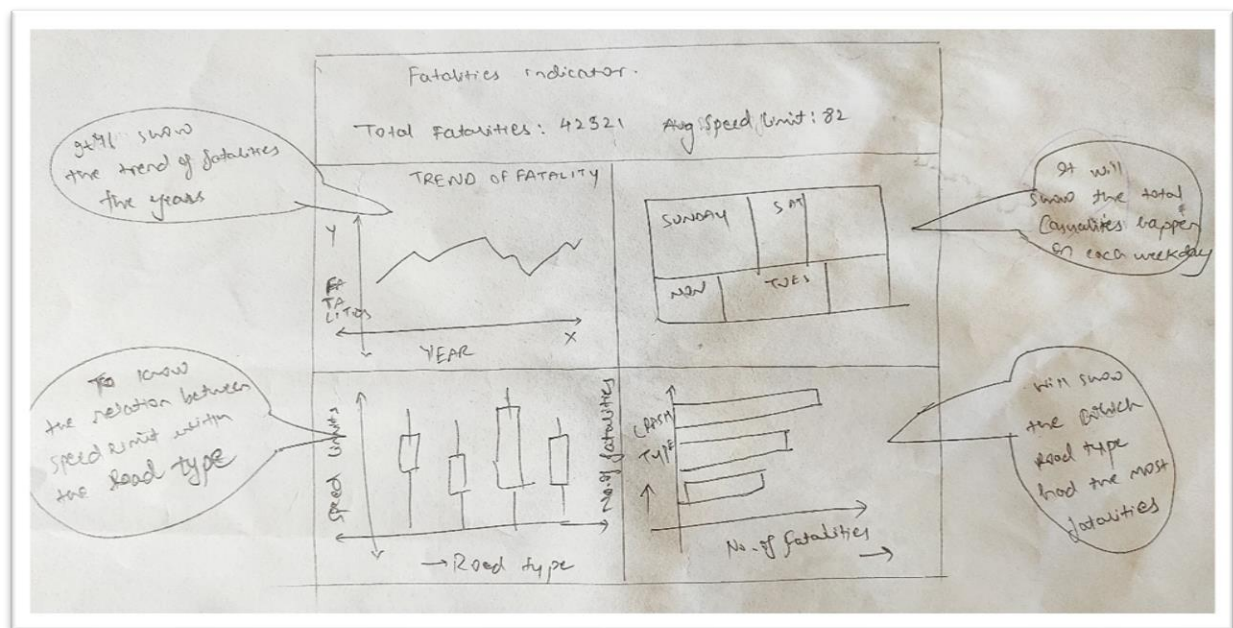 Fatalities indicator.
Total Fatalities: 42321 Avg Speed Limit: 82
It'll show
the trend of fatalities
the years
TREND OF FATALITY
Y
FA
TA
LITIES
X
YEAR
SUNDAY SAT
MON TUES
It will
show the total
Casualities happen
on each weekday
To know
the relation between
speed limit within
the Road type
Speed limits
→ Road type
No. of fatalities
CRASH
TYPE
No. of fatalities
will show
the which
Road type
had the most
fatalities